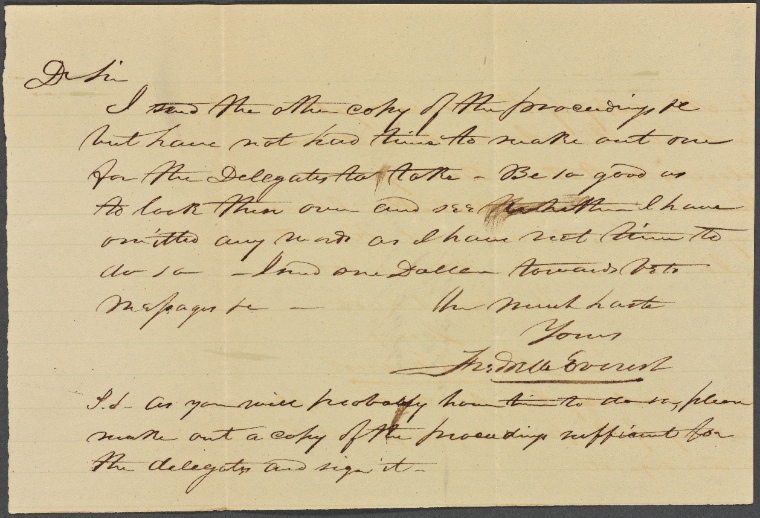 Dr Sir
I send the other copy of the proceedings &c
but have not had time to make out one
for the Delegates to take - Be so good as
to look them over and see whether I have
omitted any words as I have not time to
do so - I send one Dollar towards
messages &c - In much haste
Yours
Everest
P.S. As you will probably have time to do so, please
make out a copy of the proceedings sufficient for
the delegates and sign it -